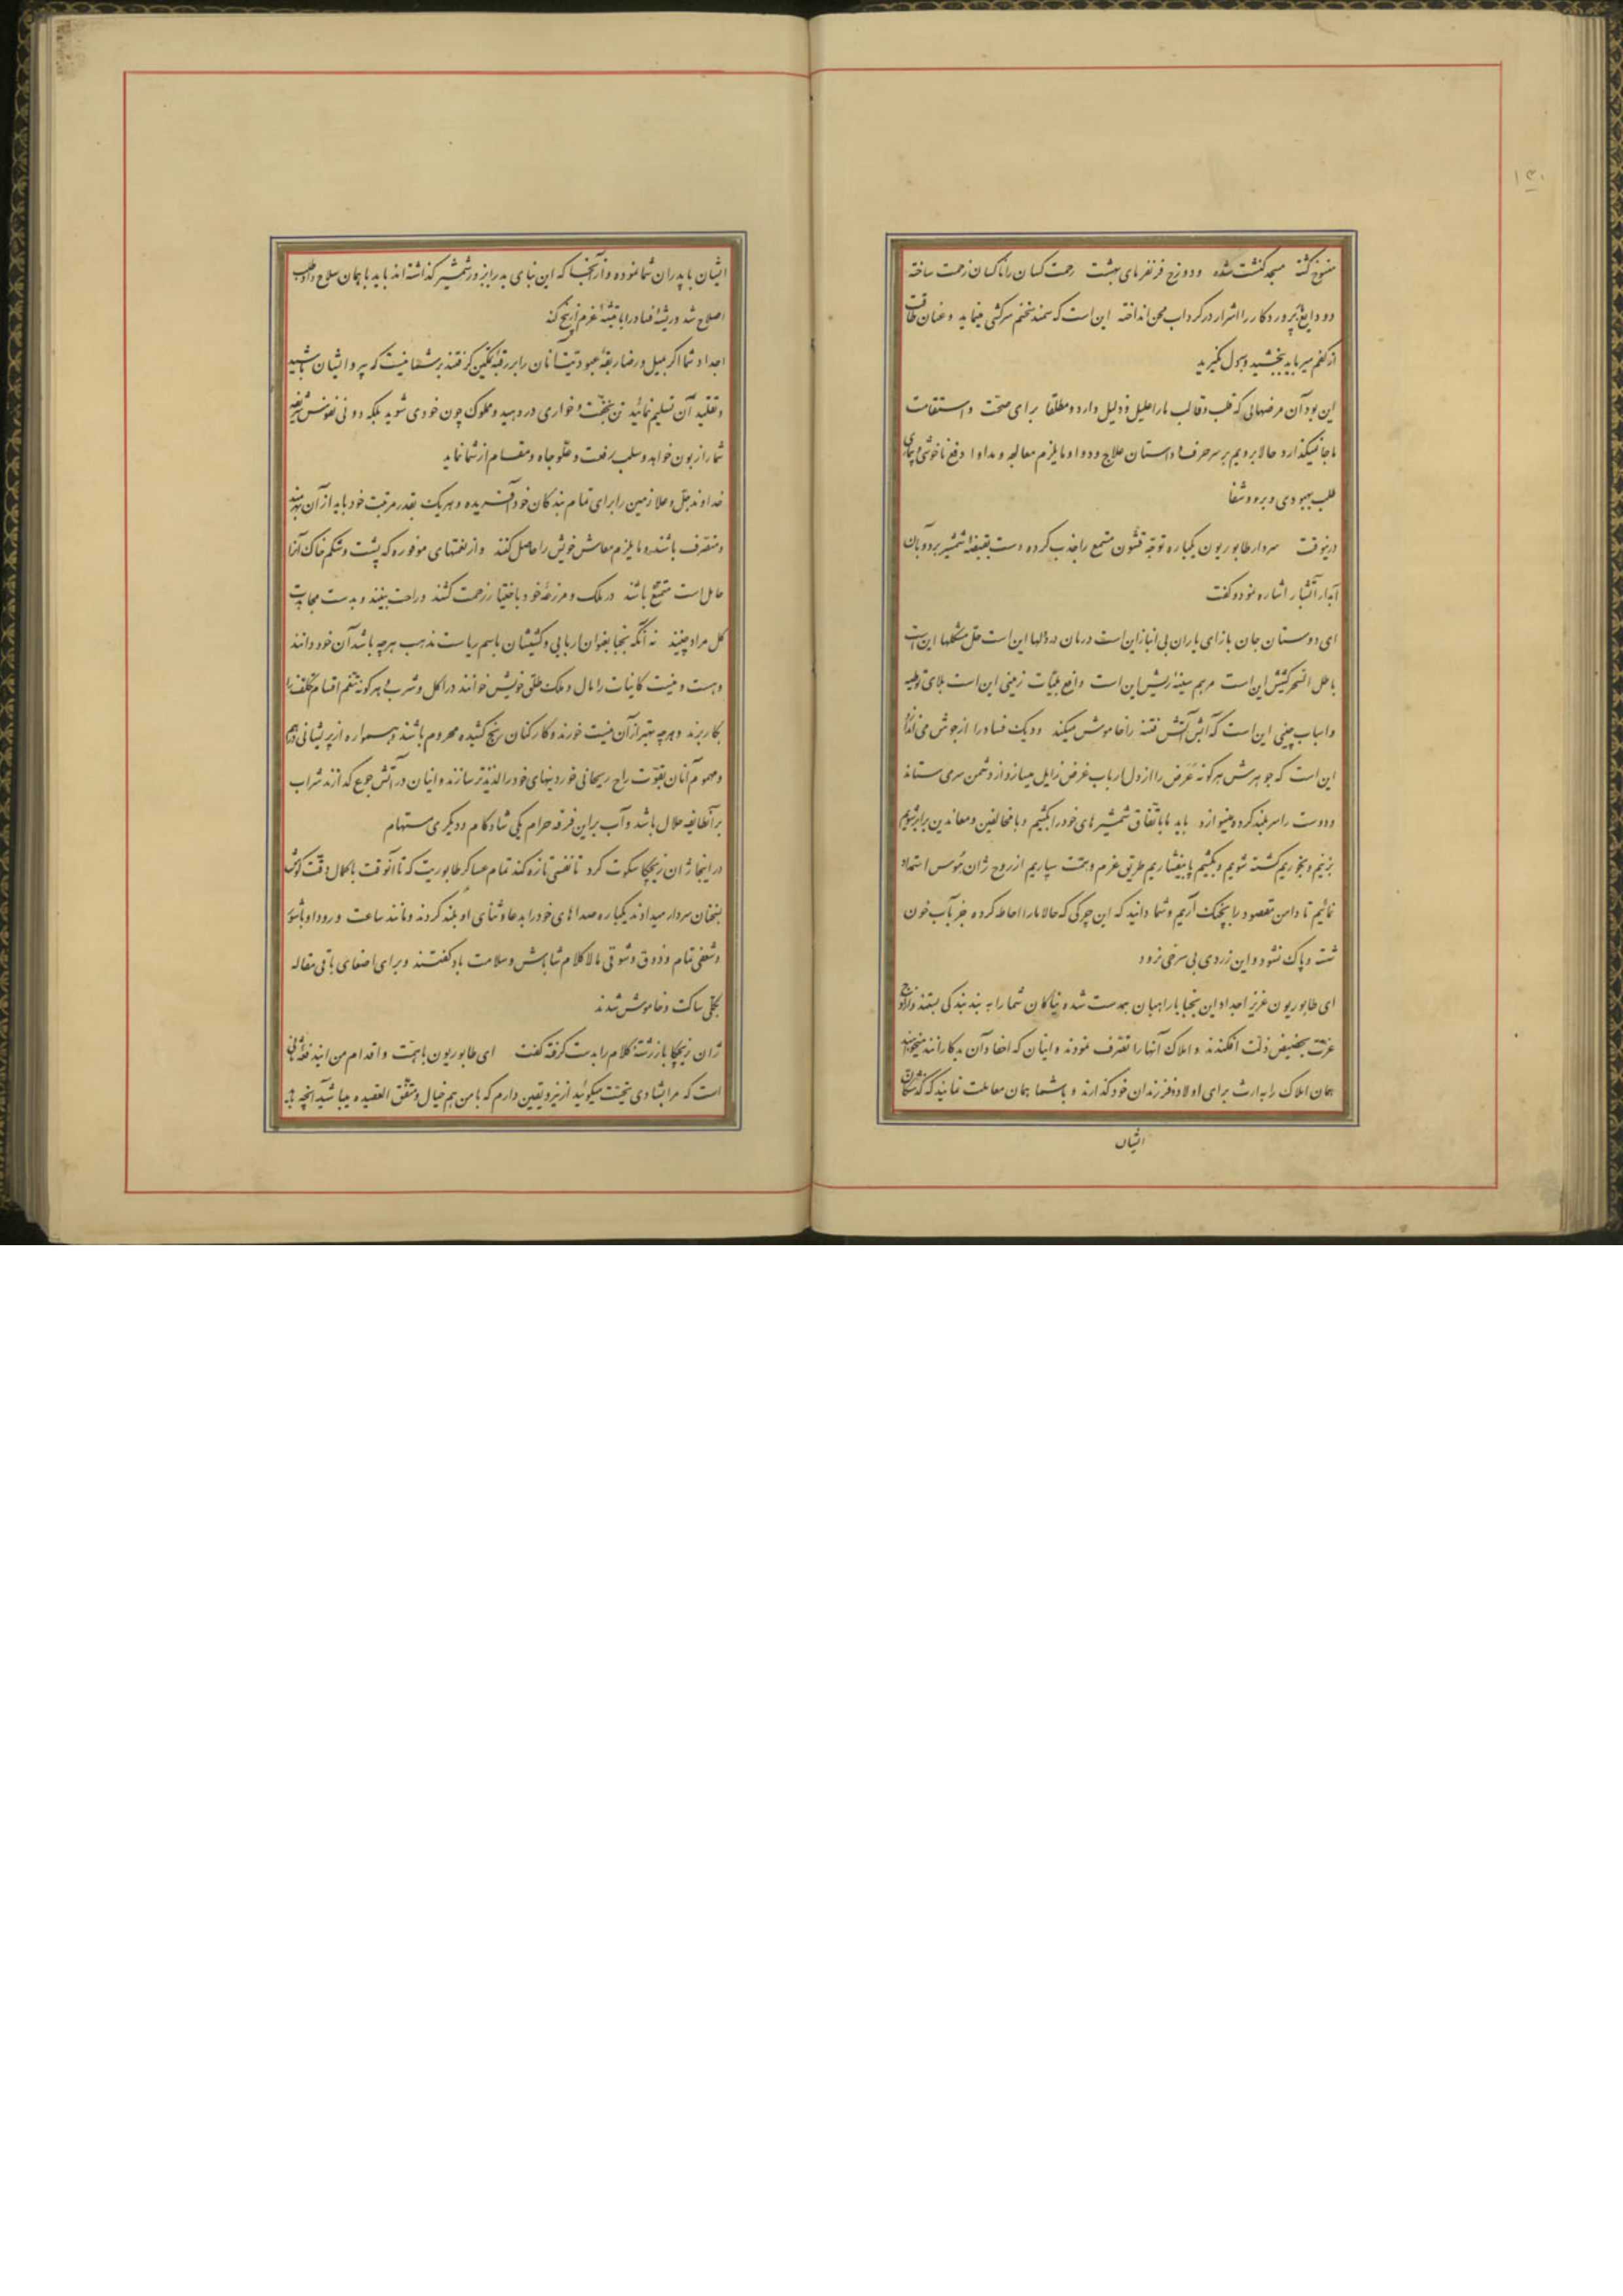 ۱۳۱
منسوخ گشته مسجد کنشت شده و دوزخ فرنفرمای بهشت زحمت کسان را ناکسان زحمت ساخته
و ودایع پروردگار را اشرار در گرداب محن انداخته این است که سمند سخنم سرکشی مینماید و عنان طاقت
از کفم میرباید ببخشید و بدل نگیرید
این بود آن مرضهائی که قلب و قالب ما را علیل و ذلیل دارد و مطلقا برای صحت و استقامت
ما جا نمیگذارد حالا برویم بر سر حرف و داستان علاج و دوا و مایلزم معالجه و مداوا و رفع ناخوشی و بیماری
طلب بهبودی و برء و شفا
درینوقت سردار طابوریون یکباره توجه قشون متجمع را جذب کرده دست بقبضهٔ شمشیر برد و بآن
آبدار آتشبار اشاره نمود و گفت
ای دوستان جان باز ای یاران بی انباز این است درمان درد دلها این است حل مشکلها این است
باطل السحر کشیش این است مرهم سینهٔ ریش این است دافع بلیات زمینی این است بلای
و اسباب چینی این است که آبش آتش فتنه را خاموش میکند و دیک فساد را از جوش می اندازد
این است که جوهرش هرگونه عَرَض را از دل ارباب غرض زایل میسازد از دشمن سر می ستاند
و دوست را سربلند کرده مینوازد باید ما باتفاق شمشیرهای خود را بکشیم و با مخالفین و معاندین برابر شویم
بزنیم و بخوریم کشته شویم و بکشیم پا بیفشاریم طریق عزم و همت سپاریم از روح ژان هوس استمداد
نمائیم تا دامن مقصود را بچنگ آریم و شما دانید که این چرکی که حالا ما را احاطه کرده جز بآب خون
شسته و پاک نشود و این زردی بی سرخی نرود
ای طابوریون عزیز اجداد این نجبا با راهبان همدست شده نیاکان شما را به بند بندگی بستند و از اوج
عزت بحضیض ذلت افکندند و املاک آنها را تصرف نمودند و اینان که احفاد آن بدکارانند میخواهند
همان املاک را به ارث برای اولاد و فرزندان خود گذارند و با شما همان معاملت نمایند که گذشتگان
ایشان
ایشان با پدران شما نموده و از آنجا که این بنای بد برابر زور شمشیر گذاشته اند باید با همان سلاح
اصلاح شد و ریشهٔ فساد را با تیشهٔ عزم از بیخ کند
اجداد شما اگر بمیل و رضا ربقهٔ عبودیت آنان را بر رقبهٔ تمکین گرفتند بر شما نیست که پیرو ایشان باشید
و تقلید آن تسلیم نمائید تن بخفت و خواری در دهید و مملوک چون خودی شوید بلکه دونی نفوس شریفهٔ
شما را زبون خواهد و سلب رفعت و علو جاه و مقام از شما نماید
خداوند جل و علا زمین را برای تمام بندگان خود آفریده و هر یک بقدر مرتبت خود باید از آن بهره مند
و متصرف باشند و مایلزم معاش خویش را حاصل کنند و از نعمتهای موفوره که پشت و شکم خاک آنرا
حامل است متمتع باشند در ملک و مزرعهٔ خود باختیار زحمت کشند و راحت بینند و بدست مجاهدت
گل مراد چینند نه آنکه نجبا بعنوان اربابی و کشیشان باسم ریاست مذهب هرچه باشد آن خود دانند
و هست و نیست کاینات را مال و ملک طلق خویش خوانند در اکل و شرب هر گونه تنعم اقسام تکلف را
بکار برند و هرچه بهتر از آن نیست خورند و کارکنان رنج کشیده محروم باشند و همواره از پریشانی درهم
و هموم آنان بقوت راح ریحانی خوردنیهای خود را لذیذتر سازند و اینان در آتش جوع گدازند شراب
بر آنطایفه حلال باشد و آب بر این فرقه حرام یکی شادکام و دیگری مستهام
در اینجا ژان زیچکا سکوت کرد تا نفسی تازه کند تمام عساکر طابوریت که تا آنوقت با کمال دقت گوش
بسخنان سردار میدادند یکباره صداهای خود را بدعا و ثنای او بلند کردند و مانند ساعت ورود او با شور
و شعفی تمام و ذوق و شوقی مالاکلام شاباش و سلامت باد گفتند و برای اصغای باقی مقاله
بکلی ساکت و خاموش شدند
ژان زیچکا باز رشتهٔ کلام را بدست گرفته گفت ای طابوریون با همت و اقدام من
است که مرا بشادی تحیت میگوئید ازینرو یقین دارم که با من هم خیال و متفق العقیده میباشید آنچه